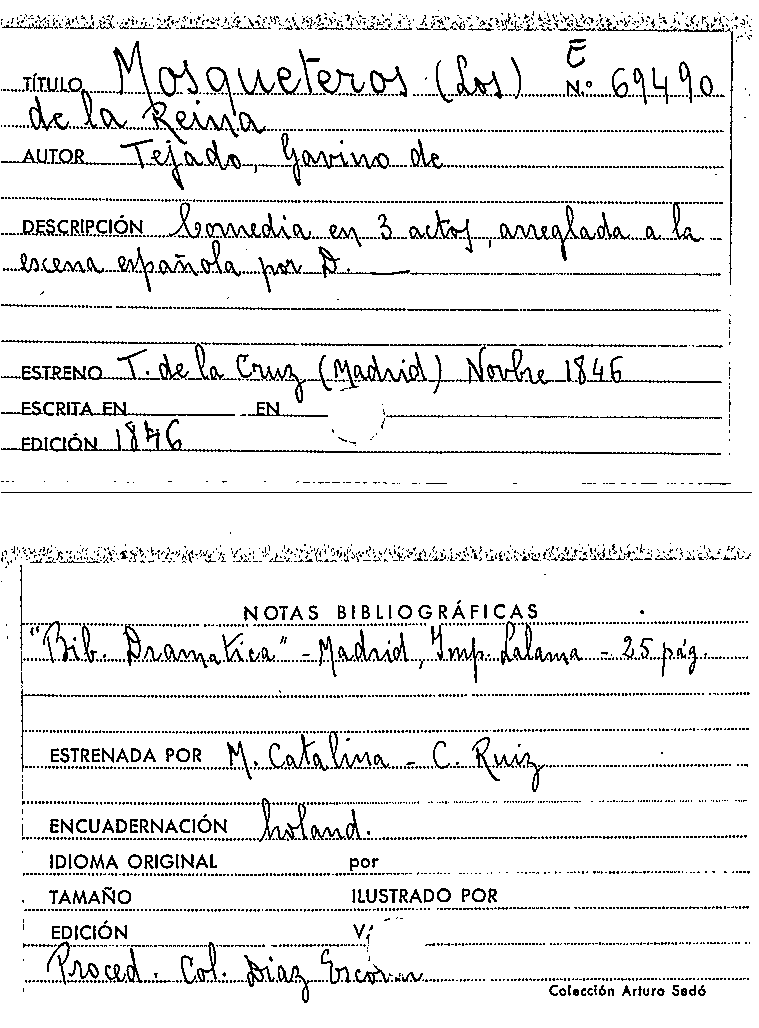 E
TÍTULO Mosqueteros (Los) N.º 69490
de la Reina
AUTOR Tejado, Gavino de
DESCRIPCIÓN Comedia en 3 actos, arreglada a la
escena española por D. ___
ESTRENO T. de la Cruz (Madrid) Novbre 1846
ESCRITA EN EN
EDICIÓN 1846
NOTAS BIBLIOGRÁFICAS
"Bib. Dramatica" - Madrid, Imp. Lalama - 25 pág.
ESTRENADA POR M. Catalina - C. Ruiz
ENCUADERNACIÓN holand.
IDIOMA ORIGINAL por
TAMAÑO ILUSTRADO POR
EDICIÓN
Proced. Col. Diaz Escovar
Colección Arturo Sedó